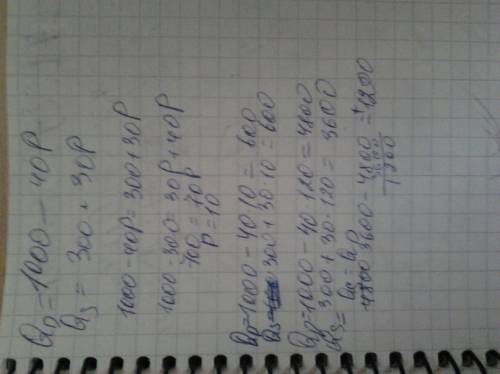 QD=1000 - 40P
Qs = 300 + 30P
1000-40P=300+30P
1000-300=30P+40P
700=70P
P=10
QD=1000-40·10= 600
Qs= 300+30·10=600
QD=1000-40·120=4800
Qs= 300+30·120= 3600
3600-4800=-1200